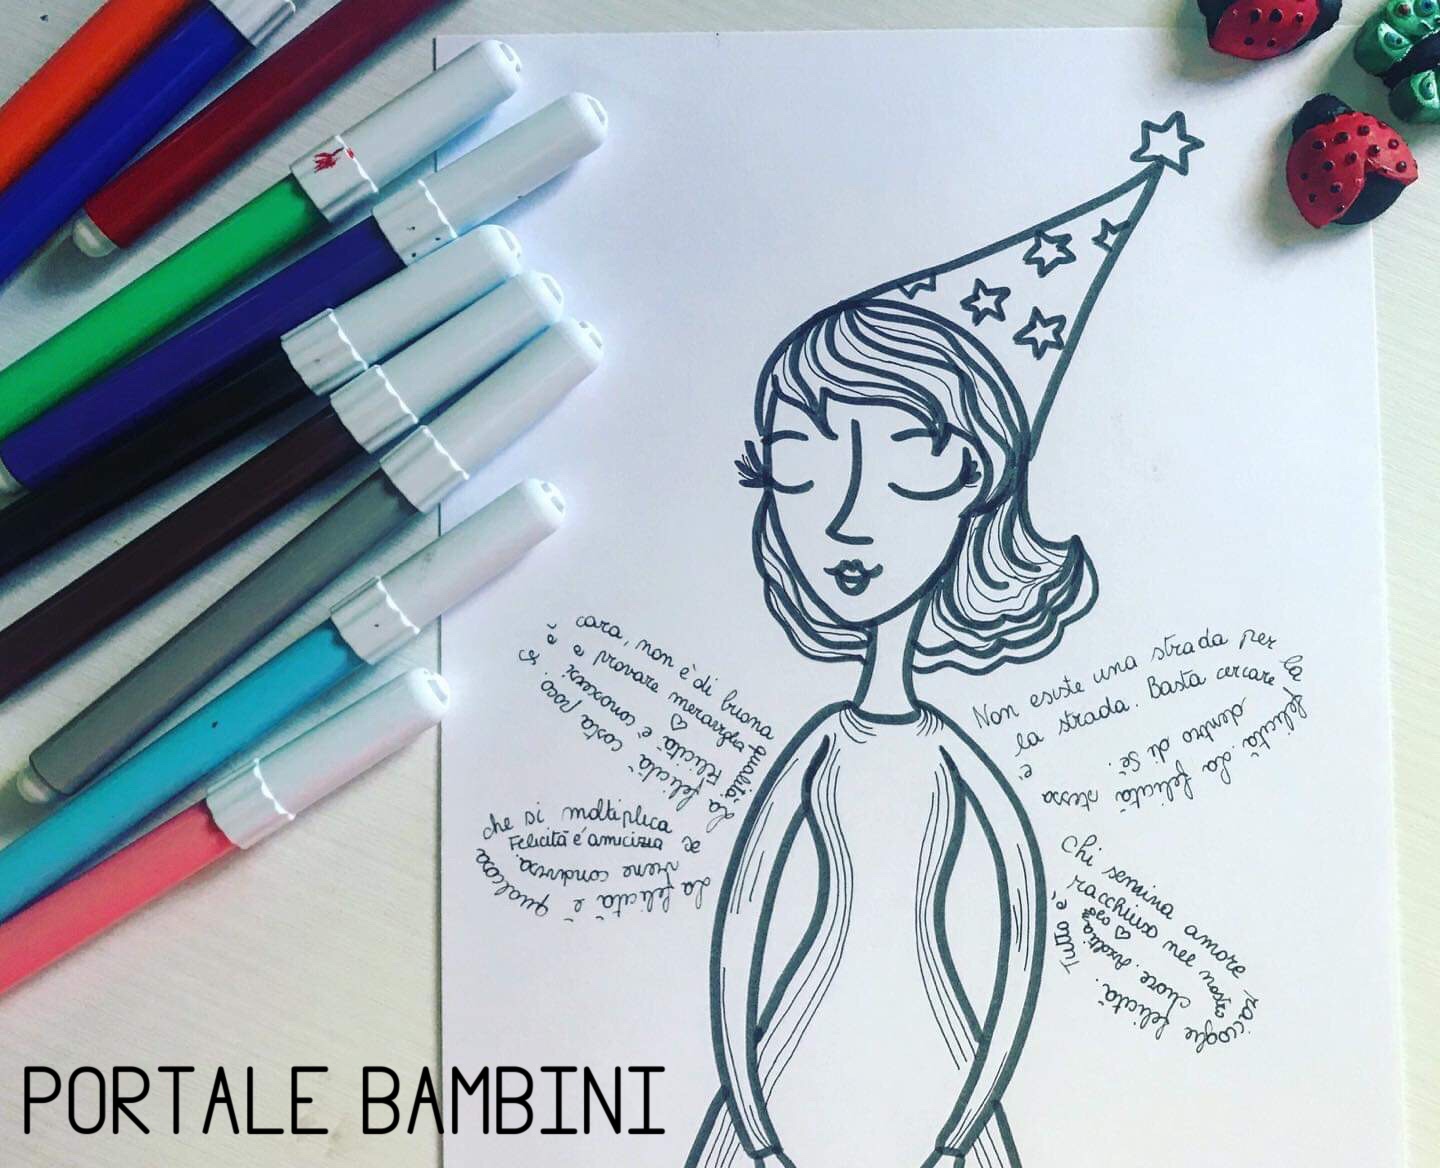 cara, non è di buona qualità.
a provare meraviglia
Felicità è conoscersi
La felicità costa poco. Se è
che si moltiplica se
Felicità è amicizia
viene condivisa.
La felicità è qualcosa
Non esiste una strada per la felicità. La felicità stessa è
la strada. Basta cercare
dentro di sé.
Chi semina amore raccoglie felicità. Tutto è
racchiuso nel nostro cuore. Ascolta
PORTALE BAMBINI